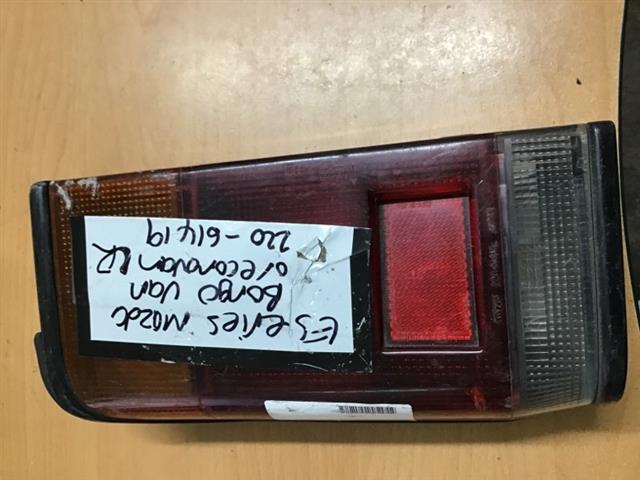 E3 eries Mazda
Bongo Van
or econovan LR
220-61419